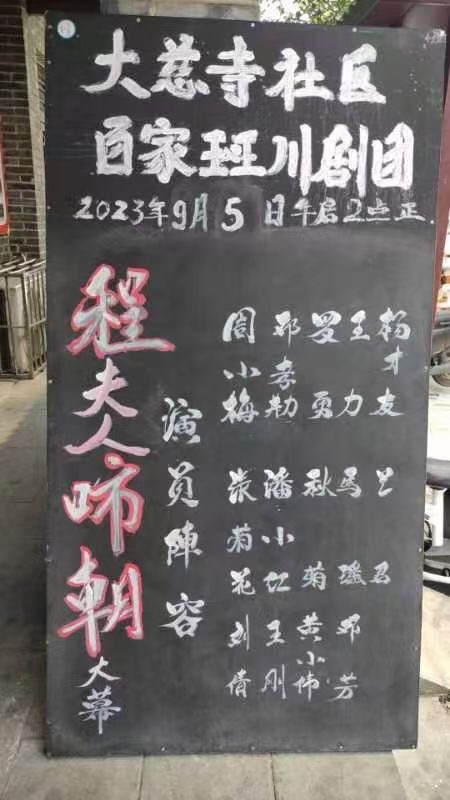 大慈寺社区
百家班川剧团
2023年9月5日午后2点正
程夫人啼朝大幕
演员阵容
周小梅 邓孝勤 罗勇 王力 杨才友
张菊花 潘小红 秋菊 马瑶
刘倩 王刚 黄小伟 邓芳